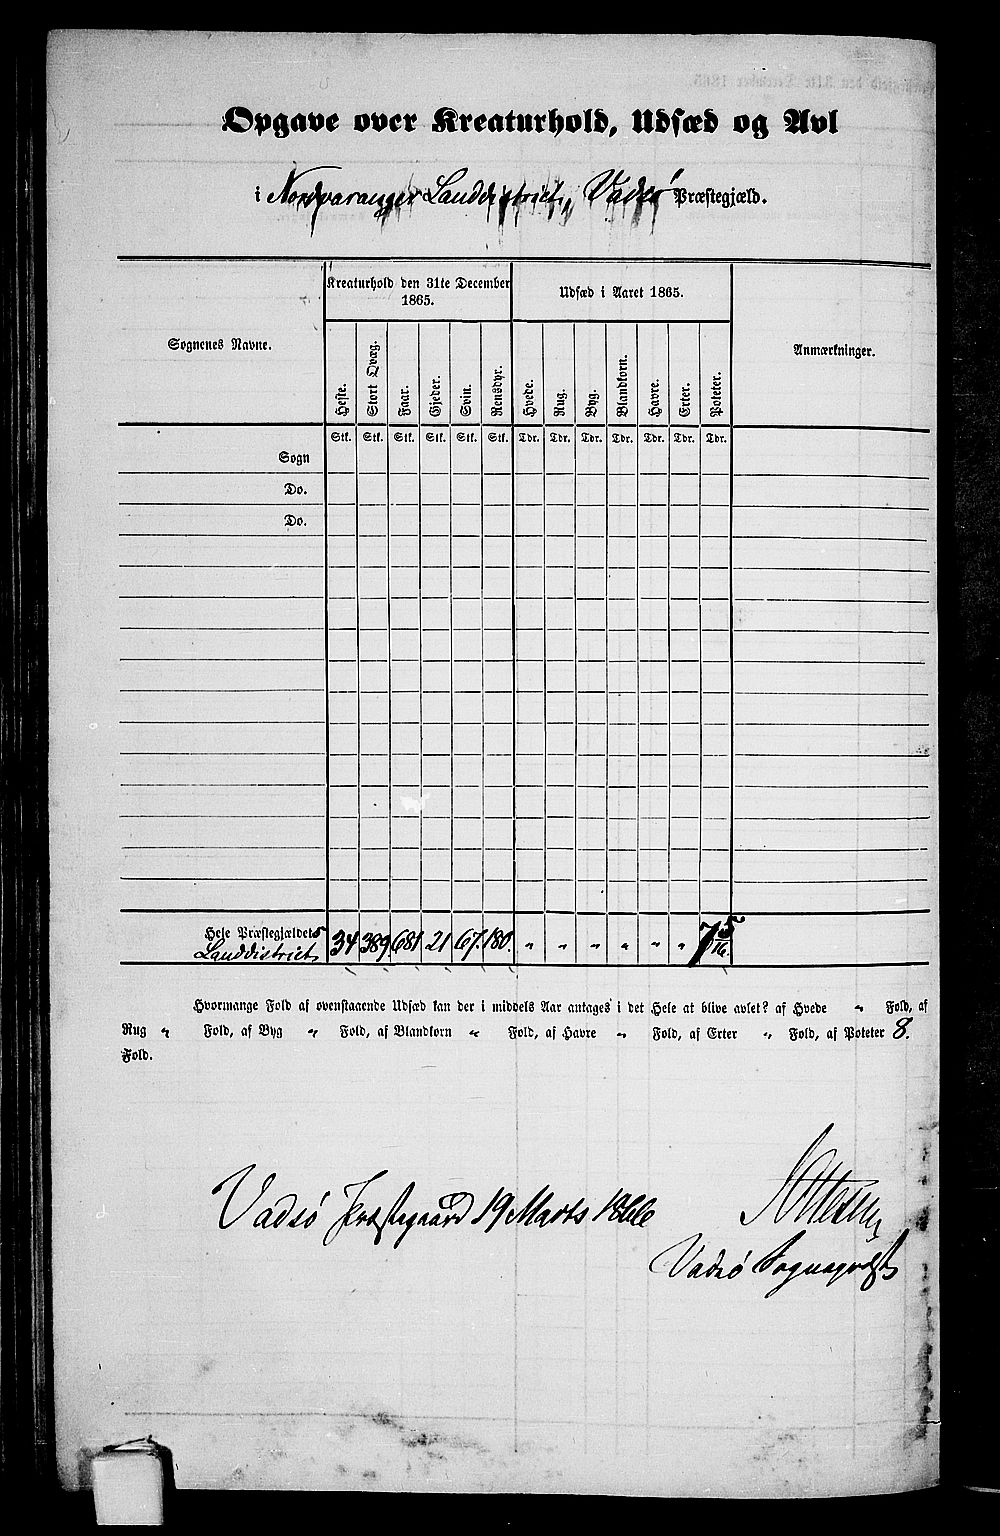 Opgave over Kreaturhold, Udsæd og Avl
i Nordvaranger Landdistrict, Vadsø Præstegjæld.
Sognenes Navne.
Kreaturhold den 31te December
1865.
Udsæd i Aaret 1865.
Anmærkninger.
Heste. Stort Qvæg. Faar. Gjeder. Svin. Rensdyr. Hvede. Rug. Byg. Blandkorn. Havre. Erter. Poteter.
Stk. Stk. Stk. Stk. Stk. Stk. Tdr. Tdr. Tdr. Tdr. Tdr. Tdr. Tdr.
Sogn
Do.
Do.
Hele Præstegjældets
Landdistrict
34 389. 681 21 67. 180. " " " " " " 7 5/16.
Hvormange Fold af ovenstaaende Udsæd kan der i middels Aar antages i det Hele at blive avlet? af Hvede " Fold, af
Rug " Fold, af Byg " Fold, af Blandkorn " Fold, af Havre " Fold, af Erter " Fold, af Poteter 8.
Fold.
Vadsø Præstegaard 19 Marts 1866
Vadsø Sognepræst